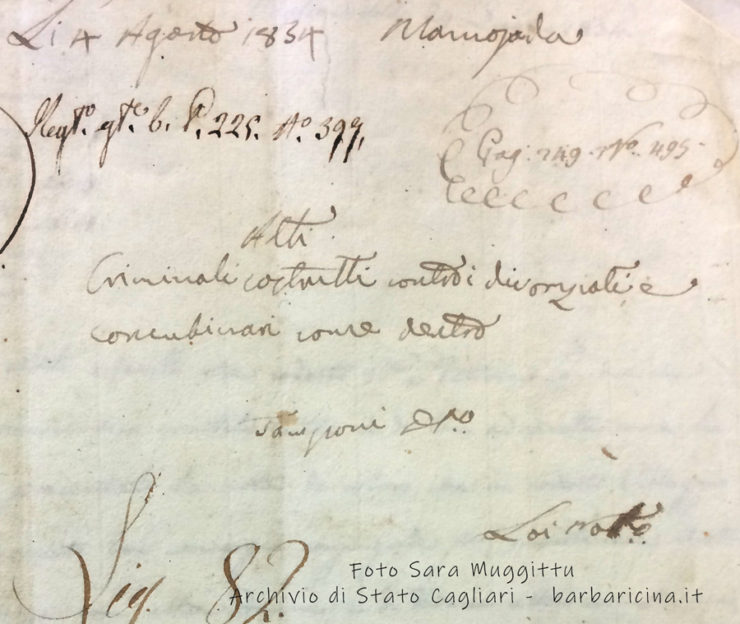 Li 4 Agosto 1834 Mamojada
Regto. gle. b. P. 225. No. 399,
Pag. 249. No. 495.
Atti
Criminali costrutti contro i divorziati e
concubinari come dentro
Lai notо
Lig. 82.
Foto Sara Muggittu
Archivio di Stato Cagliari - barbaricina.it